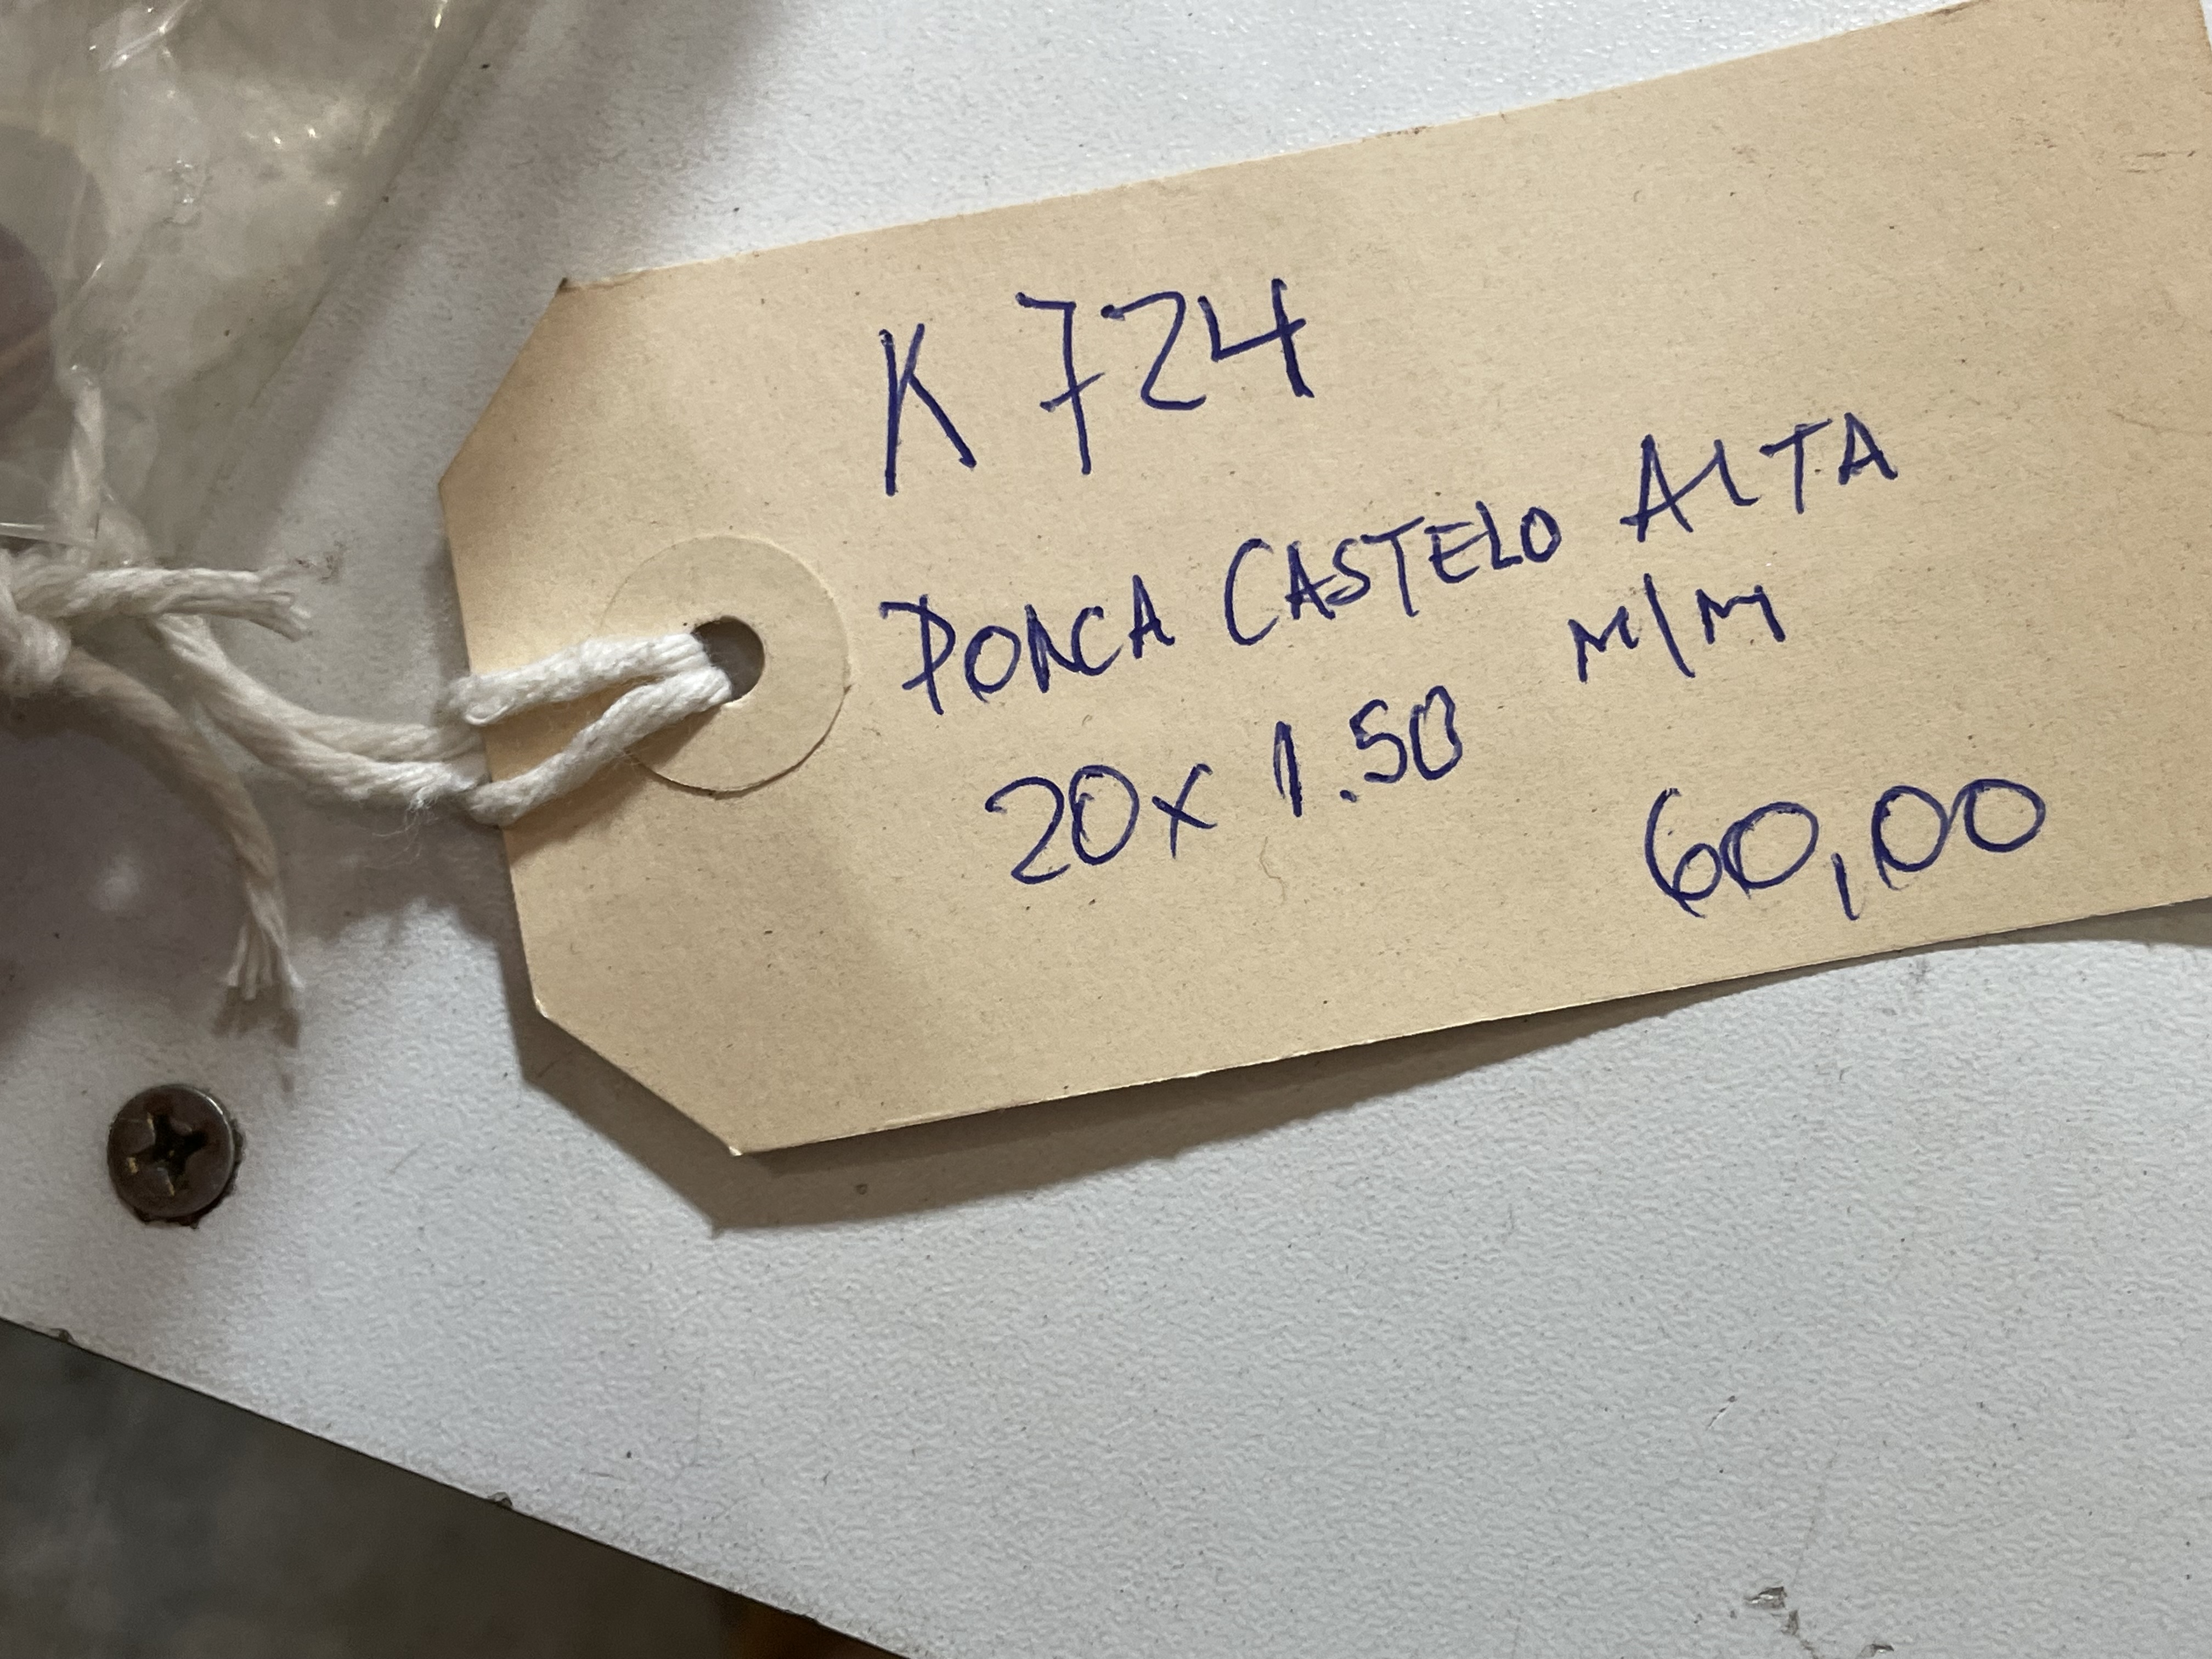 K 724
PORCA CASTELO ALTA
20 x 1.50 M/M
60,00